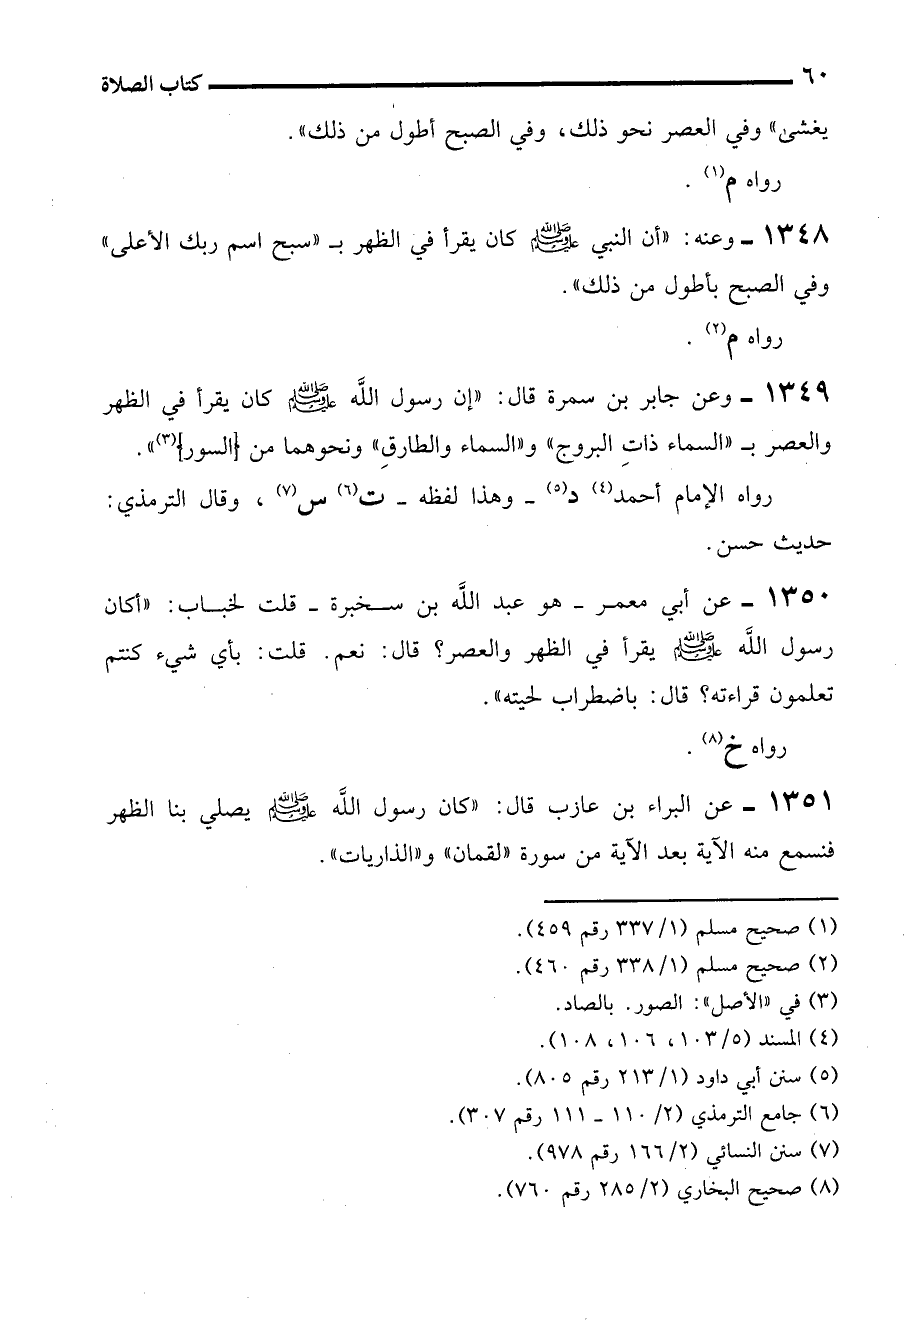 ٦٠ كتاب الصلاة
يغشى» وفي العصر نحو ذلك، وفي الصبح أطول من ذلك».
رواه م(١) .
١٣٤٨ ـ وعنه: «أن النبي ﷺ كان يقرأ في الظهر بـ «سبح اسم ربك الأعلى»
وفي الصبح بأطول من ذلك».
رواه م(٢) .
١٣٤٩ ـ وعن جابر بن سمرة قال: «إن رسول اللَّه ﷺ كان يقرأ في الظهر
والعصر بـ «السماء ذاتِ البروج» و«السماء والطارقِ» ونحوهما من {السور}(٣)».
رواه الإمام أحمد(٤) د(٥) ـ وهذا لفظه ـ ت(٦) س(٧) ، وقال الترمذي:
حديث حسن.
١٣٥٠ ـ عن أبي معمر ـ هو عبد اللَّه بن سخبرة ـ قلت لخباب: «أكان
رسول اللَّه ﷺ يقرأ في الظهر والعصر؟ قال: نعم. قلت: بأي شيء كنتم
تعلمون قراءته؟ قال: باضطراب لحيته».
رواه خ(٨) .
١٣٥١ ـ عن البراء بن عازب قال: «كان رسول اللَّه ﷺ يصلي بنا الظهر
فنسمع منه الآية بعد الآية من سورة «لقمان» و«الذاريات».
(١) صحيح مسلم (١/ ٣٣٧ رقم ٤٥٩).
(٢) صحيح مسلم (١/ ٣٣٨ رقم ٤٦٠).
(٣) في «الأصل»: الصور. بالصاد.
(٤) المسند (٥/ ١٠٣، ١٠٦، ١٠٨).
(٥) سنن أبي داود (١/ ٢١٣ رقم ٨٠٥).
(٦) جامع الترمذي (٢/ ١١٠ ـ ١١١ رقم ٣٠٧).
(٧) سنن النسائي (٢/ ١٦٦ رقم ٩٧٨).
(٨) صحيح البخاري (٢/ ٢٨٥ رقم ٧٦٠).